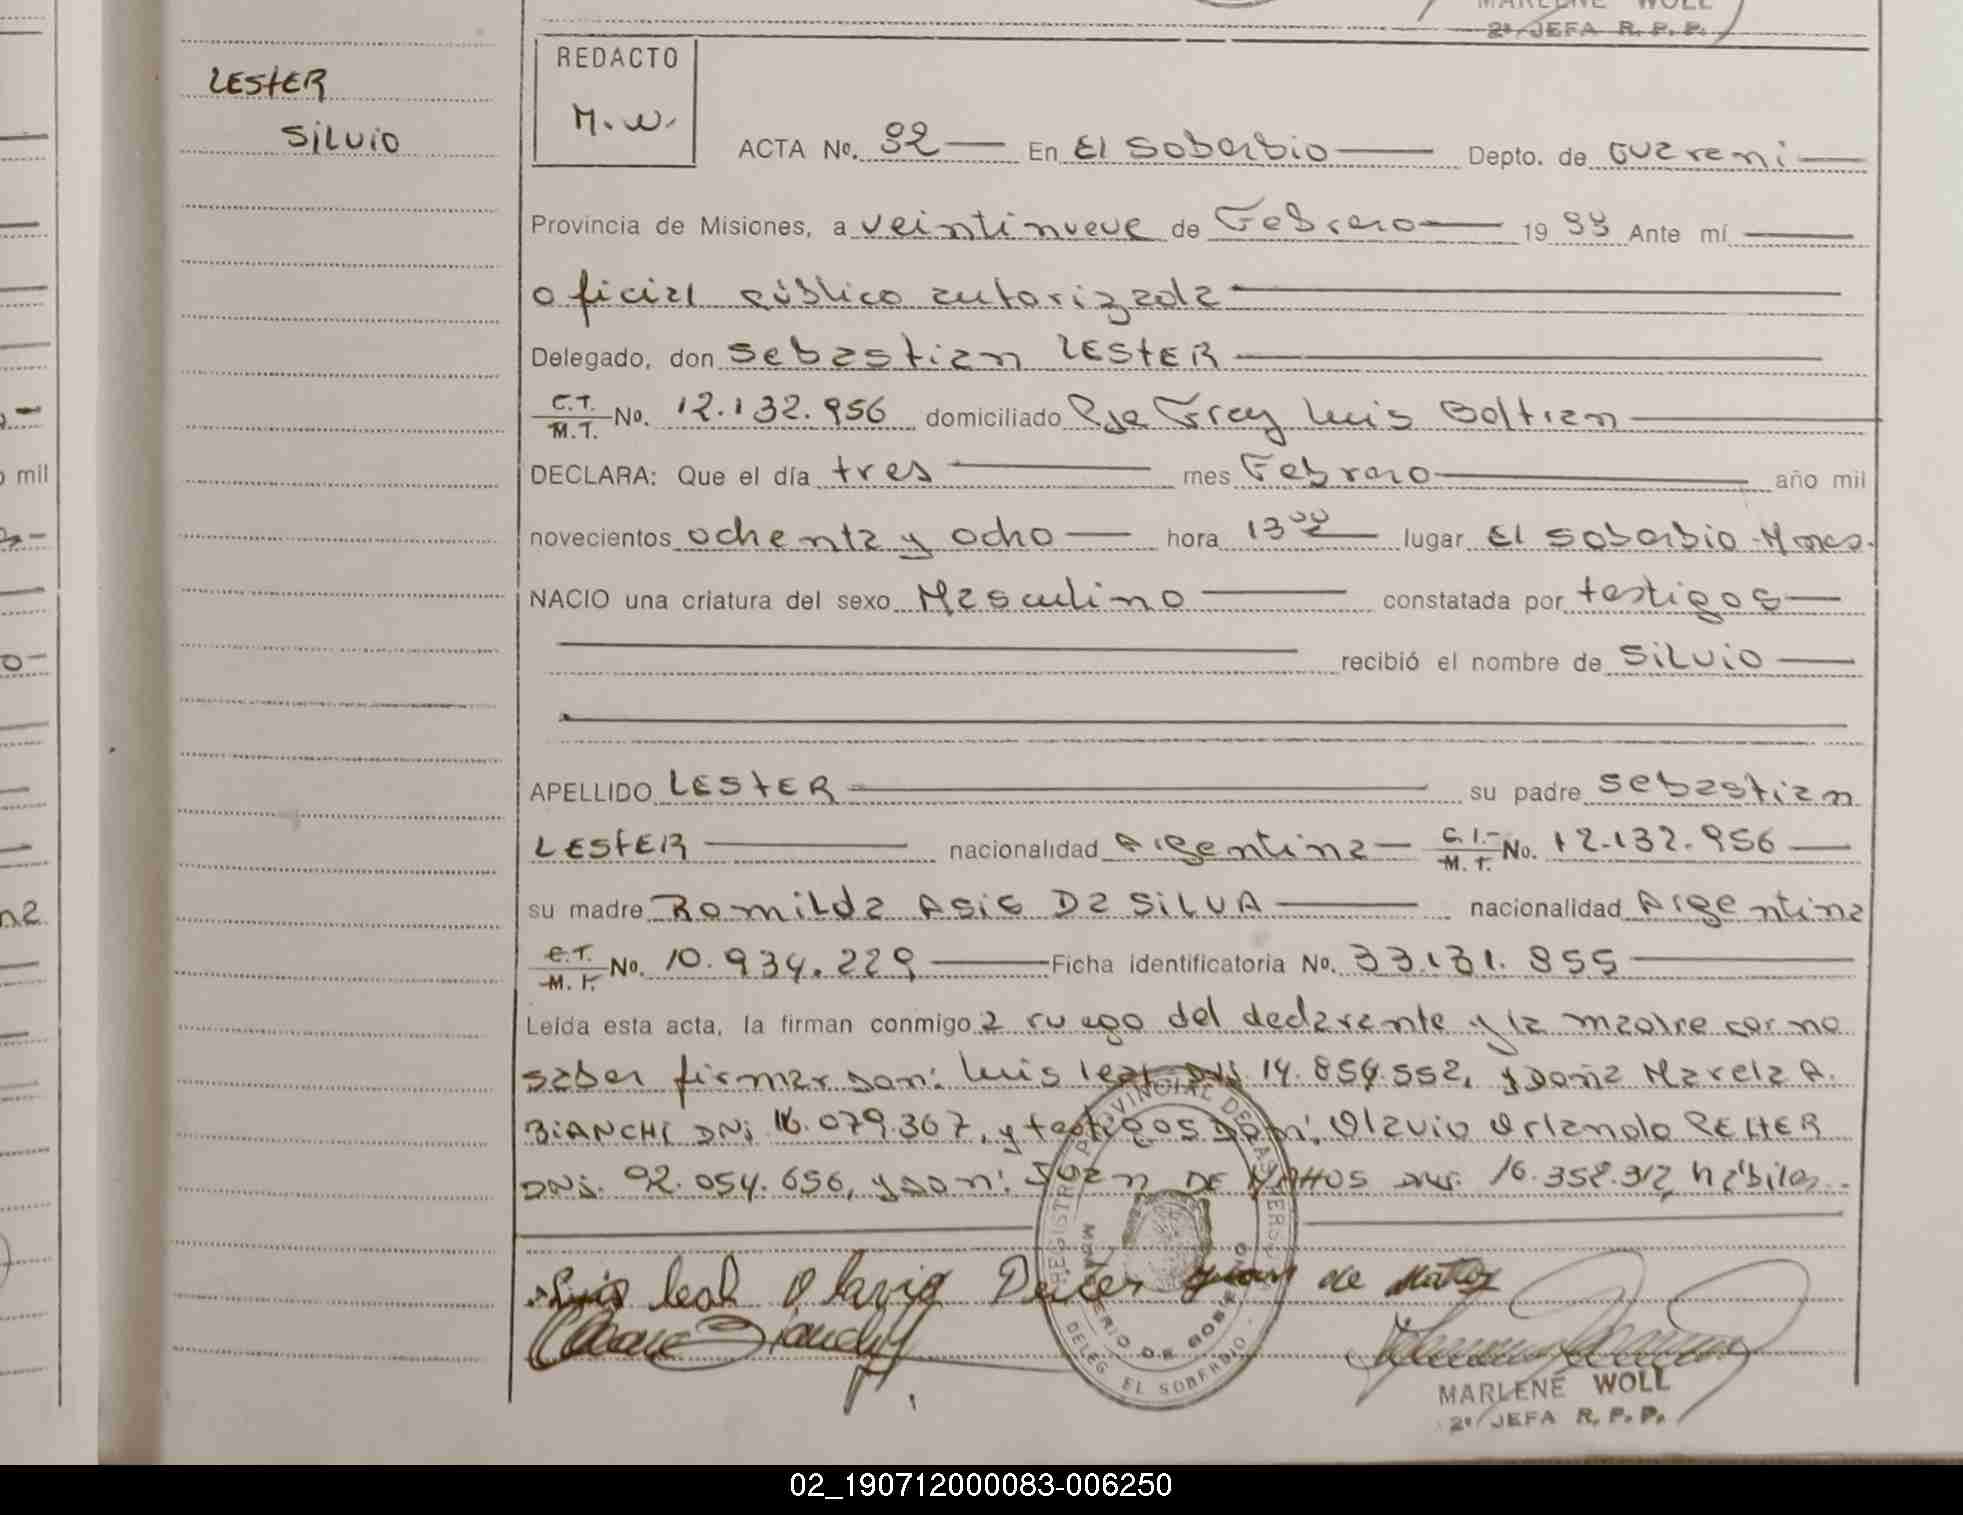 MARLENE WOLL
2ª JEFA R. P. P.
LESTER
SILVIO
REDACTO
M. W.
ACTA No. 92 En El Soberbio Depto. de Guarani
Provincia de Misiones, a veintinueve de Febrero 19 Ante mí
oficial público autorizada
Delegado, don Sebastian LESTER
C.T. M.T. No. 12.132.956 domiciliado Pje Fray Luis Beltran
DECLARA: Que el día tres mes Febrero año mil
novecientos ochenta y ocho hora 13 00 lugar El Soberbio
NACIO una criatura del sexo Masculino constatada por testigos
recibió el nombre de SILVIO
APELLIDO LESTER su padre Sebastian
LESTER nacionalidad Argentina C.I. M.T. No. 12.132.956
su madre Romilda ASIS Da SILVA nacionalidad Argentina
C.T. M.T. No. 10.934.229 Ficha identificatoria No. 33.131.855
Leída esta acta, la firman conmigo a ruego del declarante y la madre por no
saber firmar don: Luis leal DNi. 14.854.552, y Doña Marela A.
BiANCHi DNi 16.079.367, y testigos Don: Olavio Orlando
DNi. 92.054.656, y don: Juan DE MATTOS DNi. 16.358.912 hábiles.
Luis leal Olavio Juan de Matos
Bianchi
REGISTRO PROVINCIAL DE LAS PERSONAS
MINISTERIO DE GOBIERNO
DELEG. EL SOBERBIO
MARLENE WOLL
2ª JEFA R. P. P.
mil
02_190712000083-006250